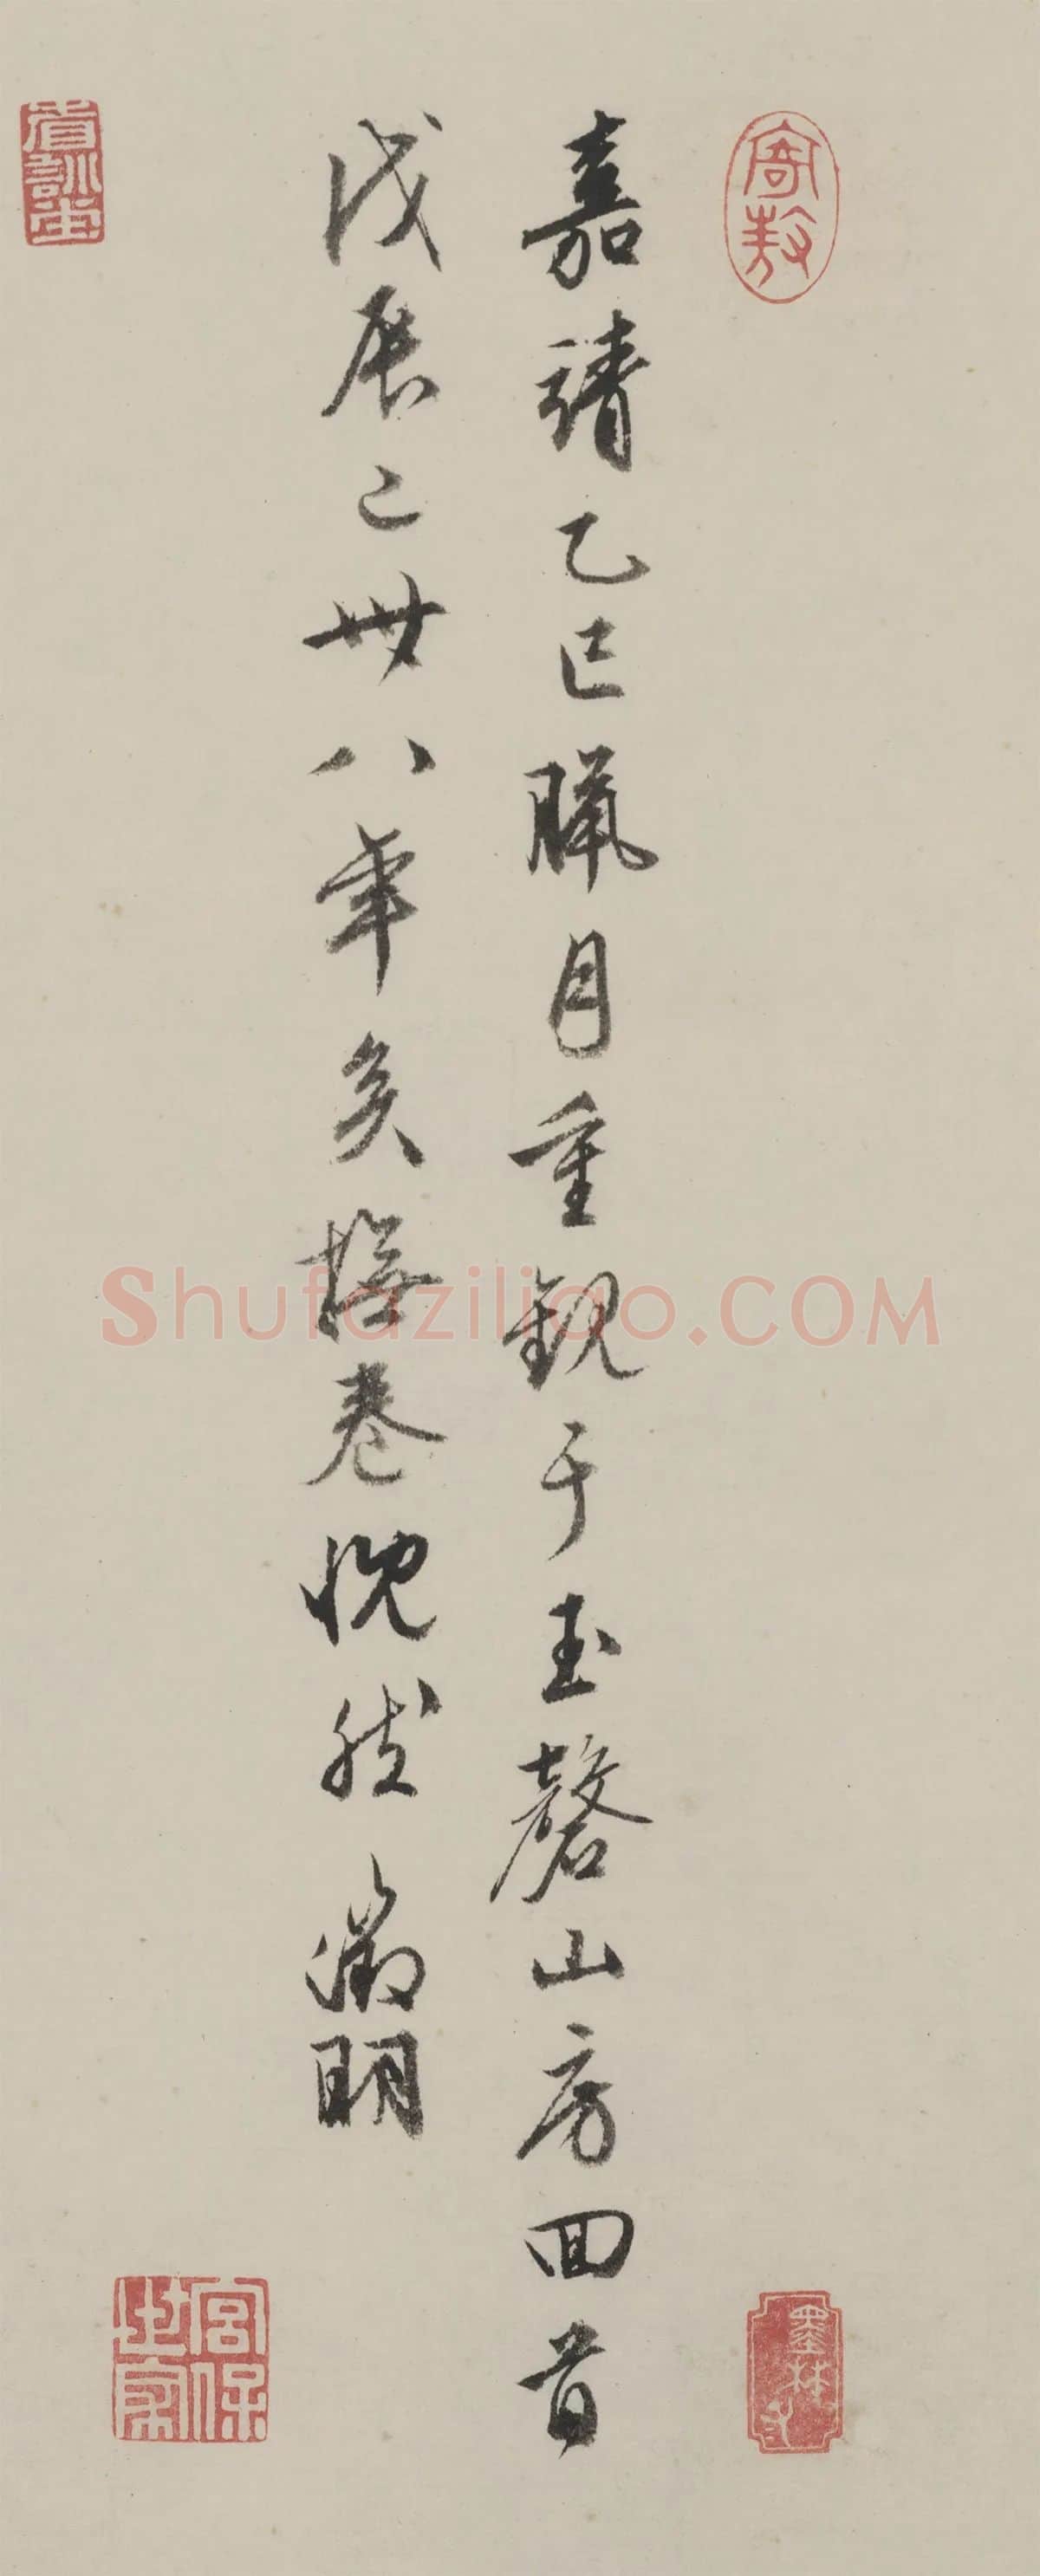 嘉靖乙巳臘月重觀于玉磬山房回首
戊辰已卅八年矣撫卷慨然 徵明
寄敖
墨林
宮保世家
Shufaziliao.COM